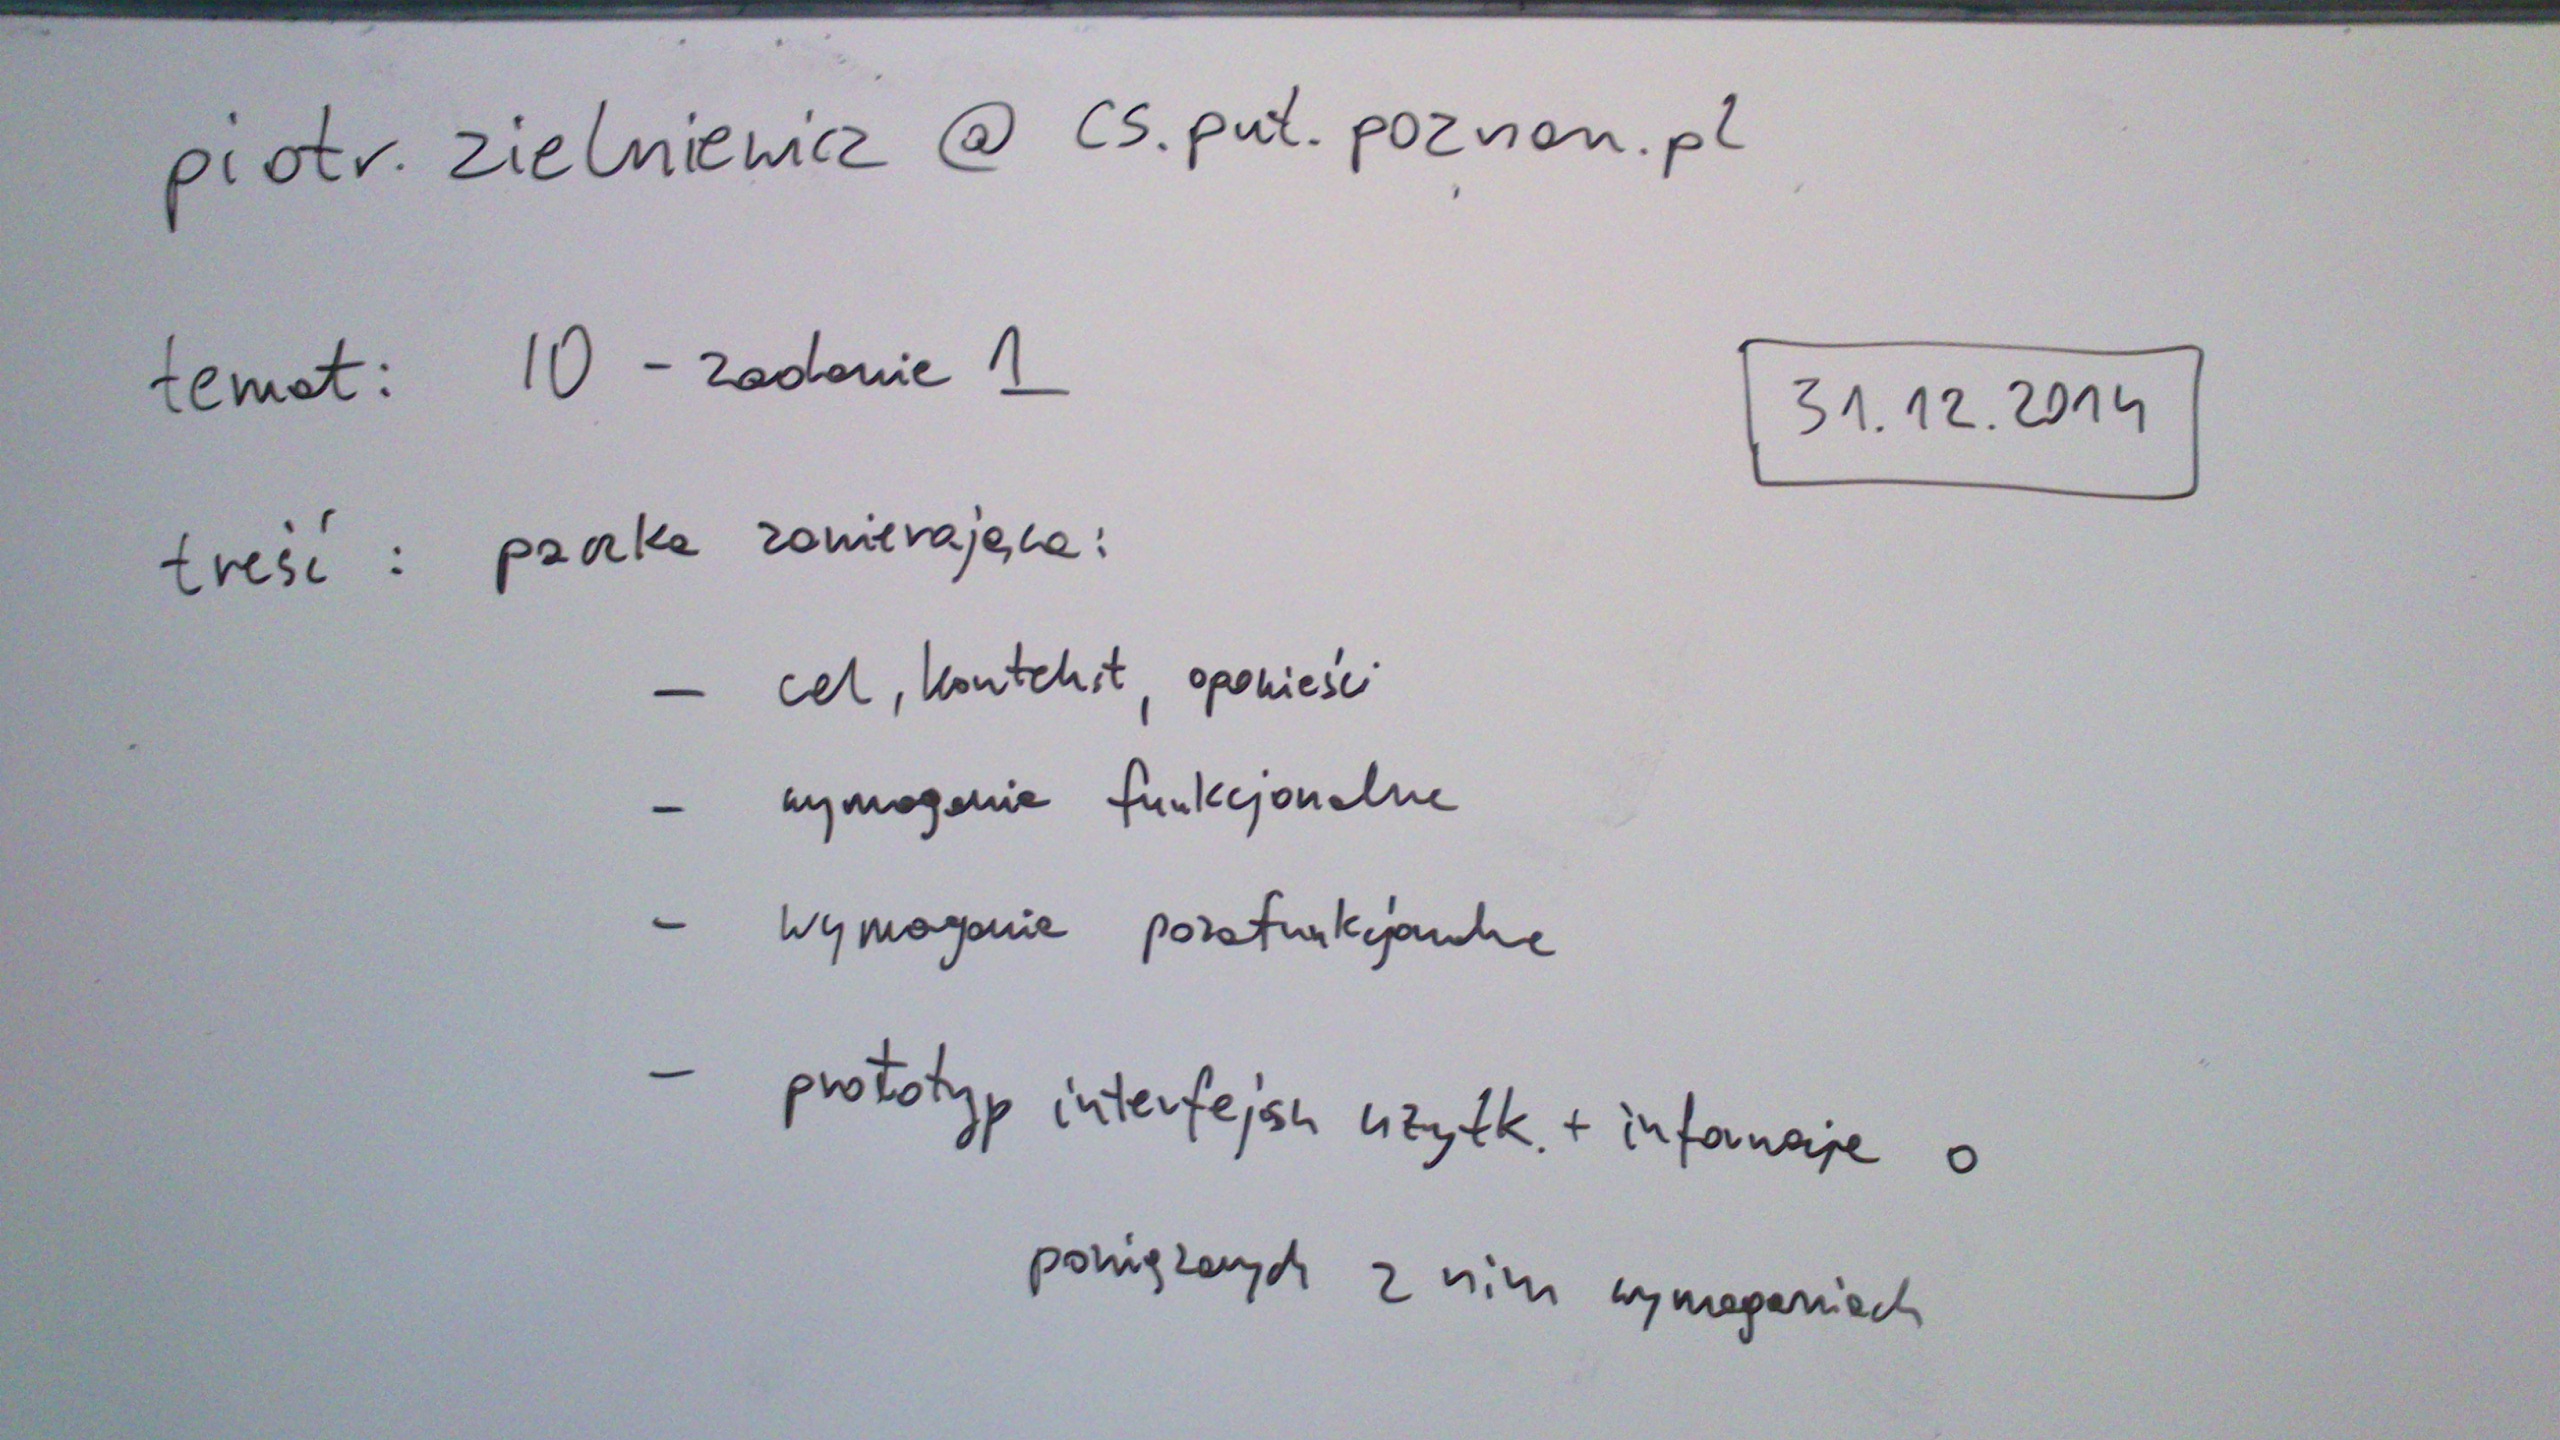 piotr.zielniewicz@cs.put.poznan.pl
temat: IO - zadanie 1
31.12.2014
treść: paczka zawierająca:
- cel, kontekst, opowieści
- wymagania funkcjonalne
- wymagania pozafunkcjonalne
- prototyp interfejsu użytk. + informacje o
powiązanych z nim wymaganiach